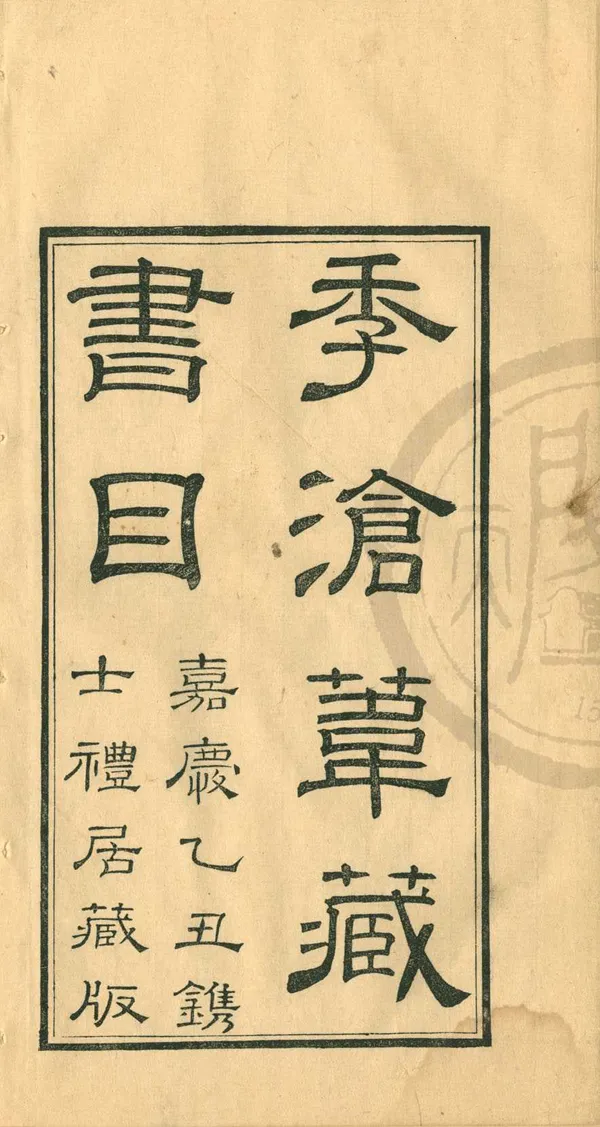 季滄葦藏
書目
嘉慶乙丑鐫
士禮居藏版